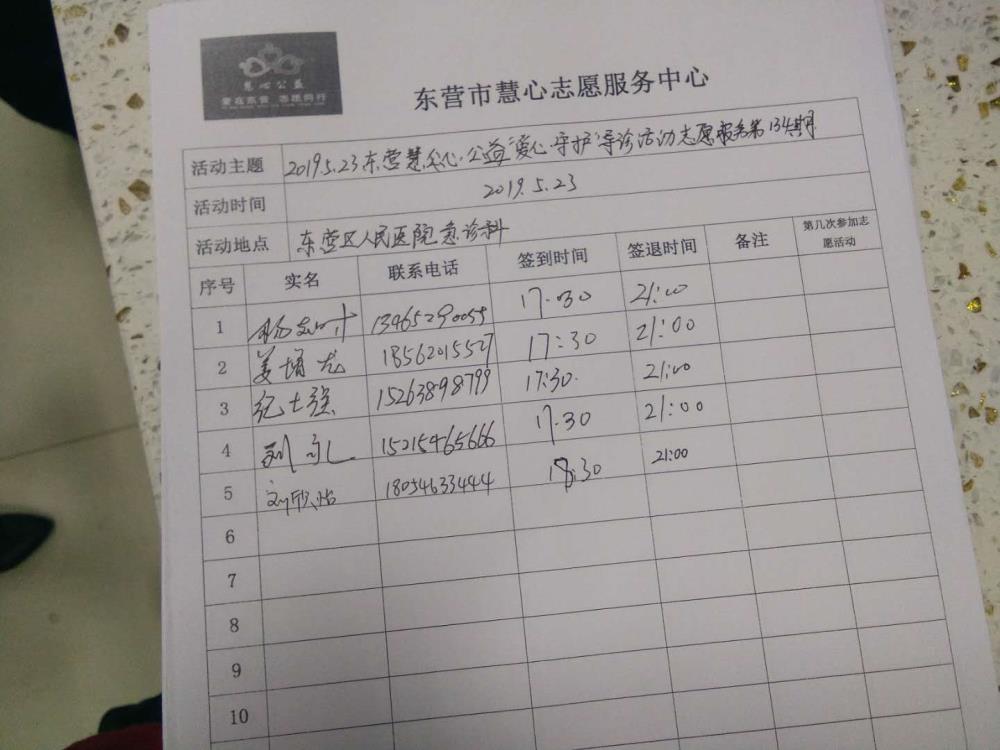 慧心公益
爱在东营 志愿同行
东营市慧心志愿服务中心
活动主题 2019.5.23东营慧心公益"爱心守护"导诊活动志愿服务第134期
活动时间 2019.5.23
活动地点 东营区人民医院急诊科
序号 实名 联系电话 签到时间 签退时间 备注 第几次参加志愿活动
1 13465290055 17:30 21:00
2 姜增光 18562015527 17:30 21:00
3 纪士强 15263898799 17:30. 21:00
4 刘 15215465666 17:30 21:00
5 刘欣怡 18054633444 18:30 21:00
6
7
8
9
10